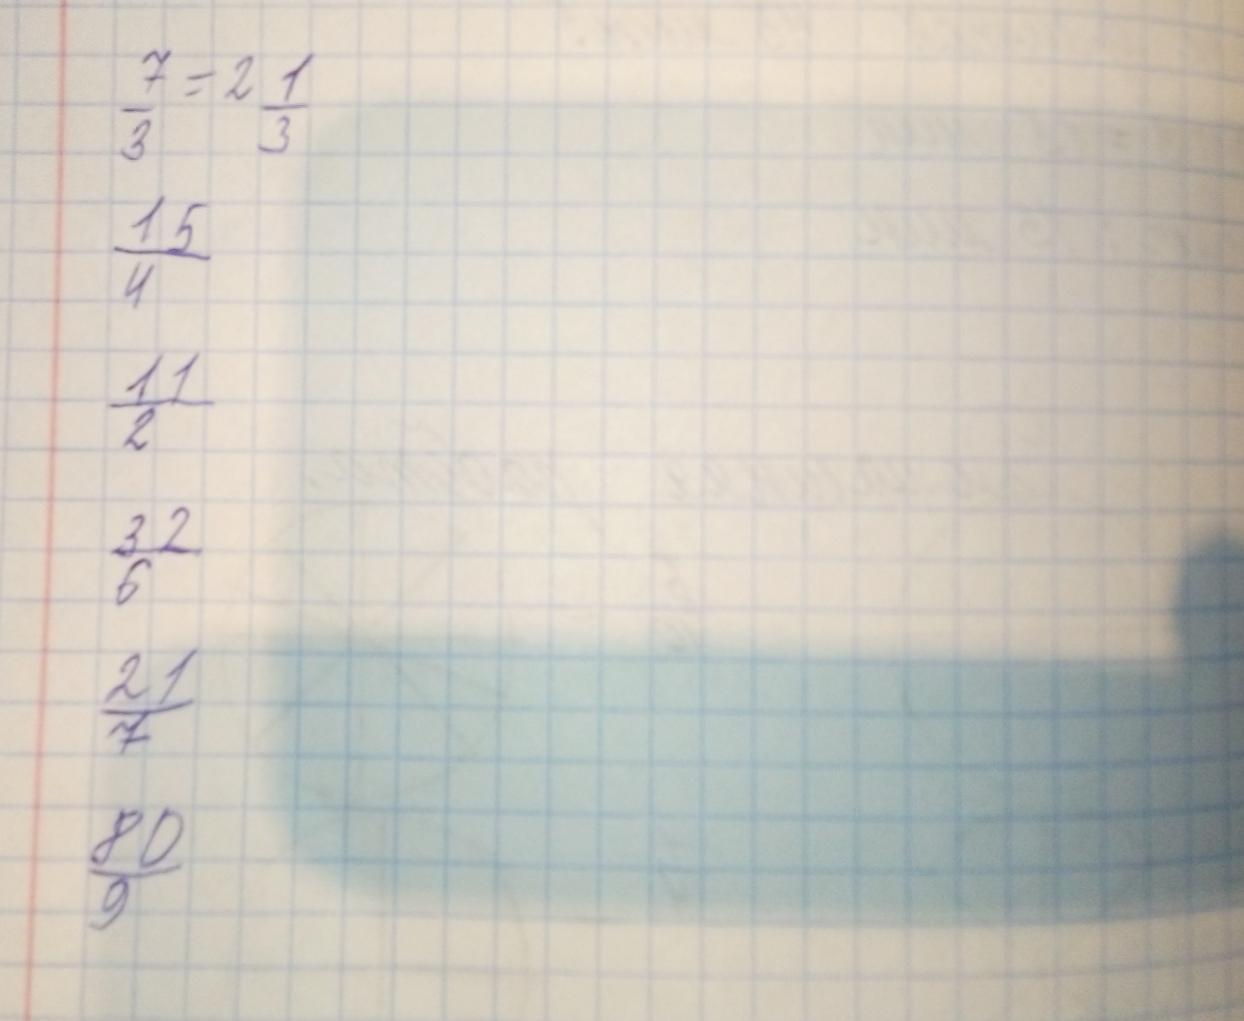 7/3 = 2 1/3
15/4
11/2
32/6
21/7
80/9